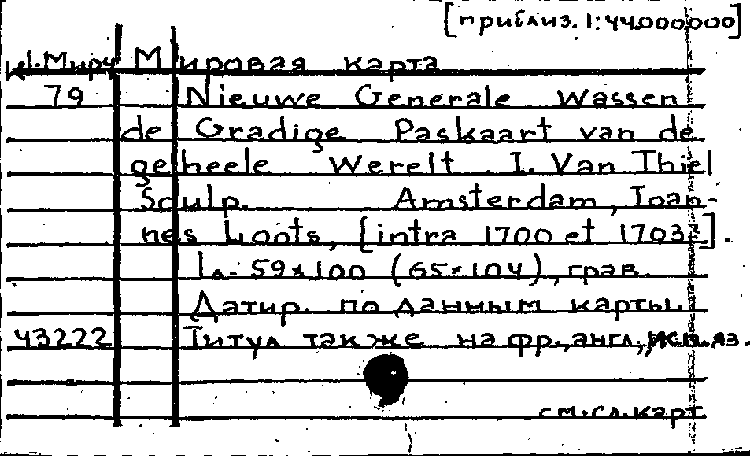 [приблиз. 1:44.000000]
М Мировая карта
79 Nieuwe Generale Wassen
de Gradige Paskaart van de
geheele Werelt. I. Van Thiel
Sculp. Amsterdam, Ioan-
nes Loots, [intra 1700 et 1703г.].
1л. 59×100 (65×104), грав.
Датир. по данным карты.
43222 Титул также на фр., англ., исп. яз.
см. сл. карт